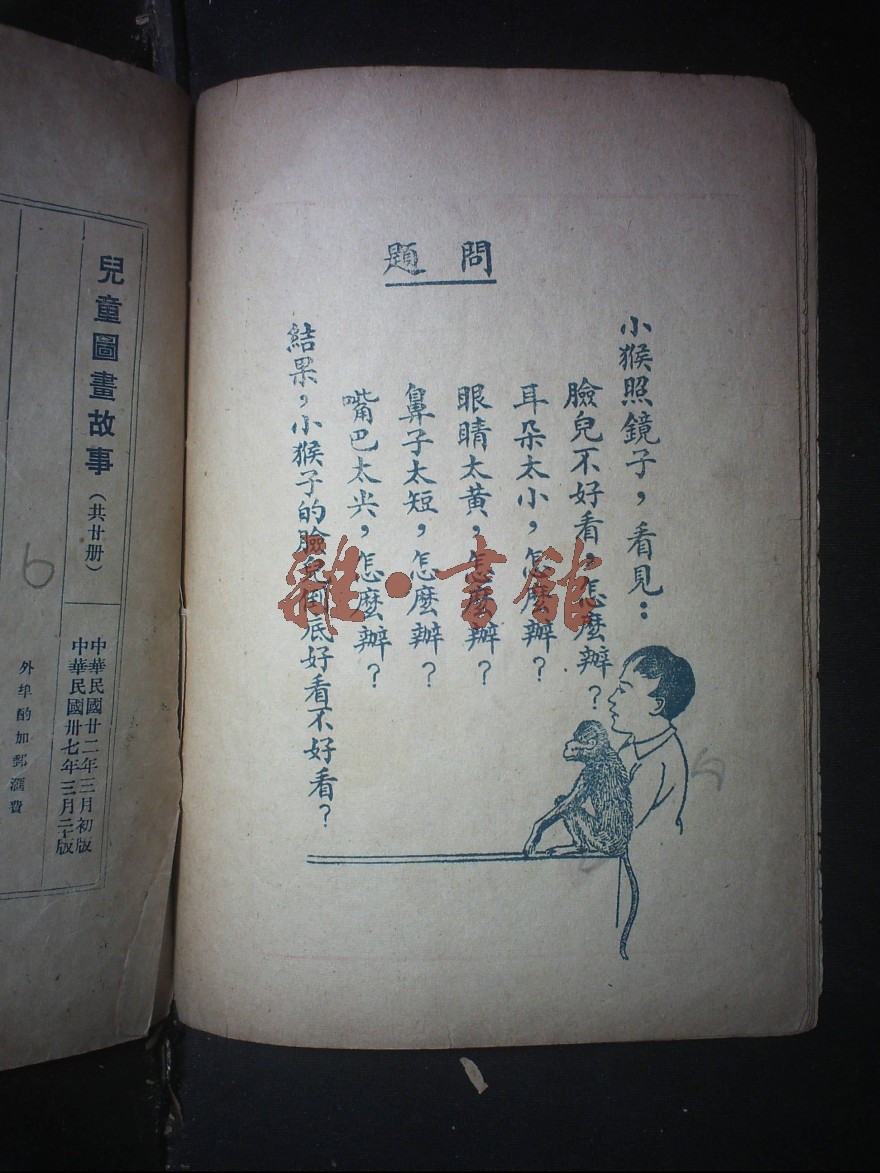 問題
小猴照鏡子，看見：
臉兒不好看，怎麼辦？
耳朵太小，怎麼辦？
眼睛太黃，怎麼辦？
鼻子太短，怎麼辦？
嘴巴太尖，怎麼辦？
結果，小猴子的臉兒到底好看不好看？
雜·書館
兒童圖畫故事（共廿册）
中華民國廿二年三月初版
中華民國卅七年三月二十版
外埠酌加郵滙費
6